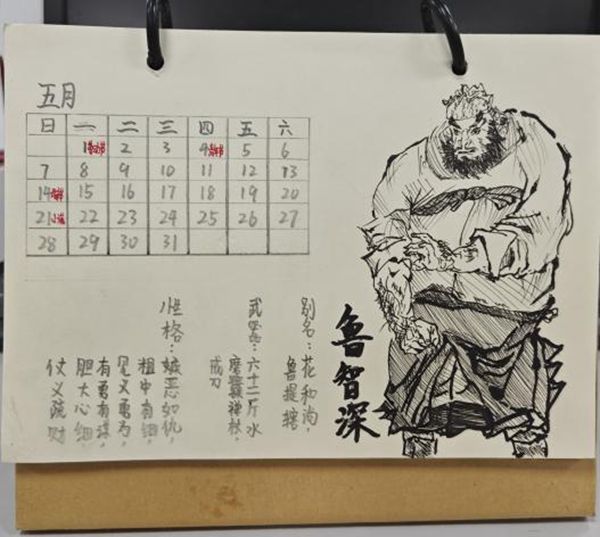 五月
日 一 二 三 四 五 六
1劳动节 2 3 4青年节 5 6
7 8 9 10 11 12 13
14母亲节 15 16 17 18 19 20
21小满 22 23 24 25 26 27
28 29 30 31
鲁智深
别名：花和尚，
鲁提辖
武器：六十二斤水
磨镔铁禅杖，
戒刀
性格：嫉恶如仇，
粗中有细，
见义勇为，
有勇有谋，
胆大心细，
仗义疏财